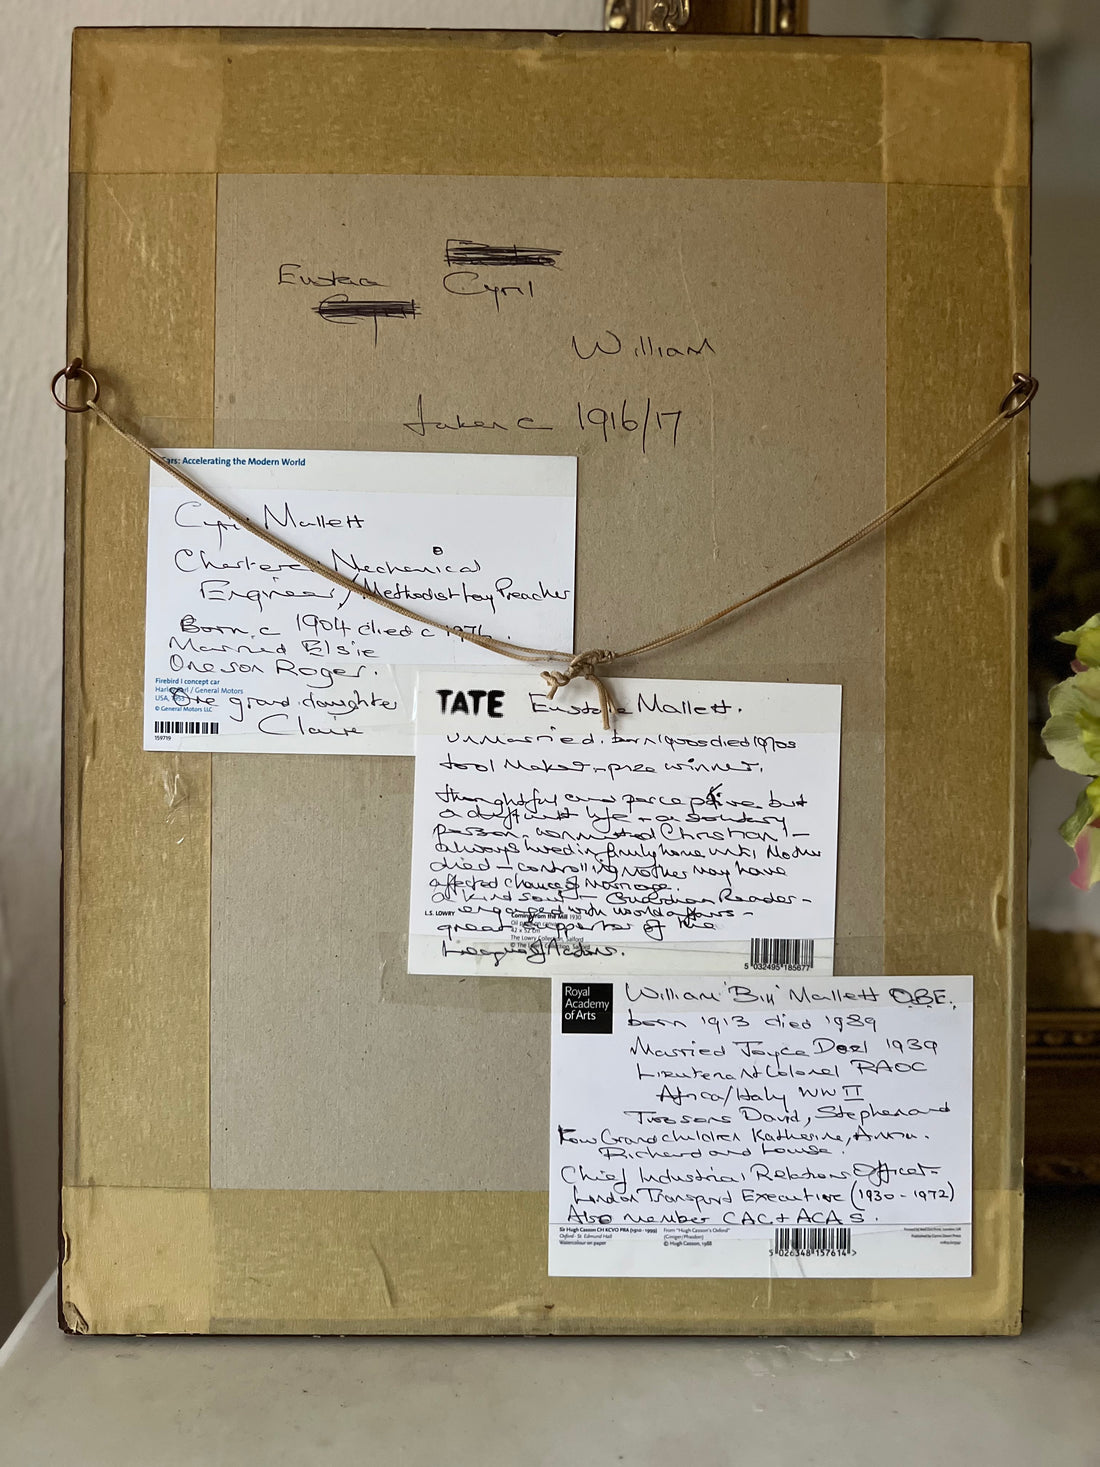 Eustace
Cyril
William
taken c 1916/17
Cars: Accelerating the Modern World
Cyril Mallett
Chartered Mechanical
Engineer/Methodist lay Preacher
Born c 1904 died c 1976.
Married Elsie
One son Roger.
One grand daughter
Claire
Firebird I concept car
Harley Earl / General Motors
USA,
© General Motors LLC
159719
TATE Eustace Mallett.
unmarried. born 1900s died 1970s
tool Maker - prize winner.
thoughtful and perceptive but
a difficult life - a solitary
person. committed Christian -
always lived in family home until Mother
died - controlling Mother may have
affected chance of marriage.
a kind soul - Guardian Reader -
engaged with world affairs -
great supporter of the
League of Nations.
L.S. LOWRY
Coming from the Mill 1930
Oil on
42 x 52 cm
The Lowry Collection, Salford
© The Lowry Collection, Salford
5 032495 185677
Royal
Academy
of Arts
William 'Bill' Mallett OBE.
born 1913 died 1989
Married Joyce Deel 1939
Lieutenant Colonel RAOC
Africa/Italy WW II
Two sons David, Stephen and
Four Grandchildren Katherine, Anna.
Richard and Louise.
Chief Industrial Relations Officer -
London Transport Executive (1930 - 1972)
Also member CAC + ACAS.
Sir Hugh Casson CH KCVO PRA (1910 - 1999)
Oxford - St. Edmund Hall
Watercolour on paper
From "Hugh Casson's Oxford"
(Ginger/Phaidon)
© Hugh Casson, 1988
5 026348 157614 >